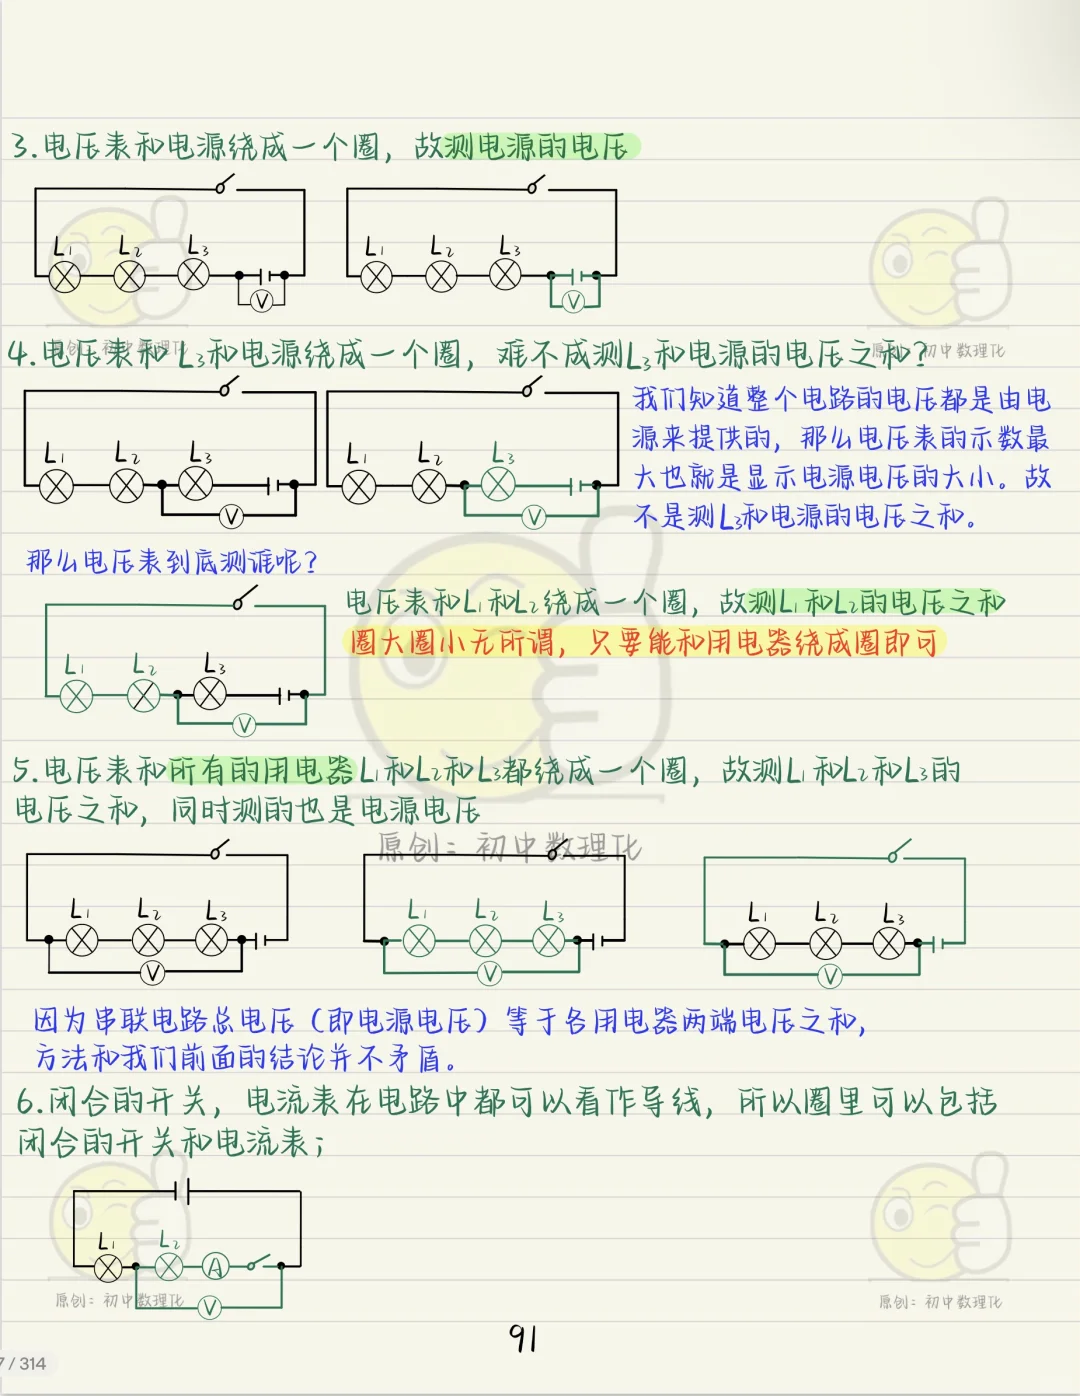 3.电压表和电源绕成一个圈，故测电源的电压
L₁ L₂ L₃
V
L₁ L₂ L₃
V
原创：初中数理化
原创：初中数理化
4.电压表和L₃和电源绕成一个圈，难不成测L₃和电源的电压之和？
L₁ L₂ L₃
V
L₁ L₂ L₃
V
我们知道整个电路的电压都是由电
源来提供的，那么电压表的示数最
大也就是显示电源电压的大小。故
不是测L₃和电源的电压之和。
那么电压表到底测谁呢？
L₁ L₂ L₃
V
电压表和L₁和L₂绕成一个圈，故测L₁和L₂的电压之和
圈大圈小无所谓，只要能和用电器绕成圈即可
5.电压表和所有的用电器L₁和L₂和L₃都绕成一个圈，故测L₁和L₂和L₃的
电压之和，同时测的也是电源电压
原创：初中数理化
L₁ L₂ L₃
V
L₁ L₂ L₃
V
L₁ L₂ L₃
V
因为串联电路总电压（即电源电压）等于各用电器两端电压之和，
方法和我们前面的结论并不矛盾。
6.闭合的开关，电流表在电路中都可以看作导线，所以圈里可以包括
闭合的开关和电流表；
L₁ L₂ A
V
原创：初中数理化
原创：初中数理化
91
7 / 314